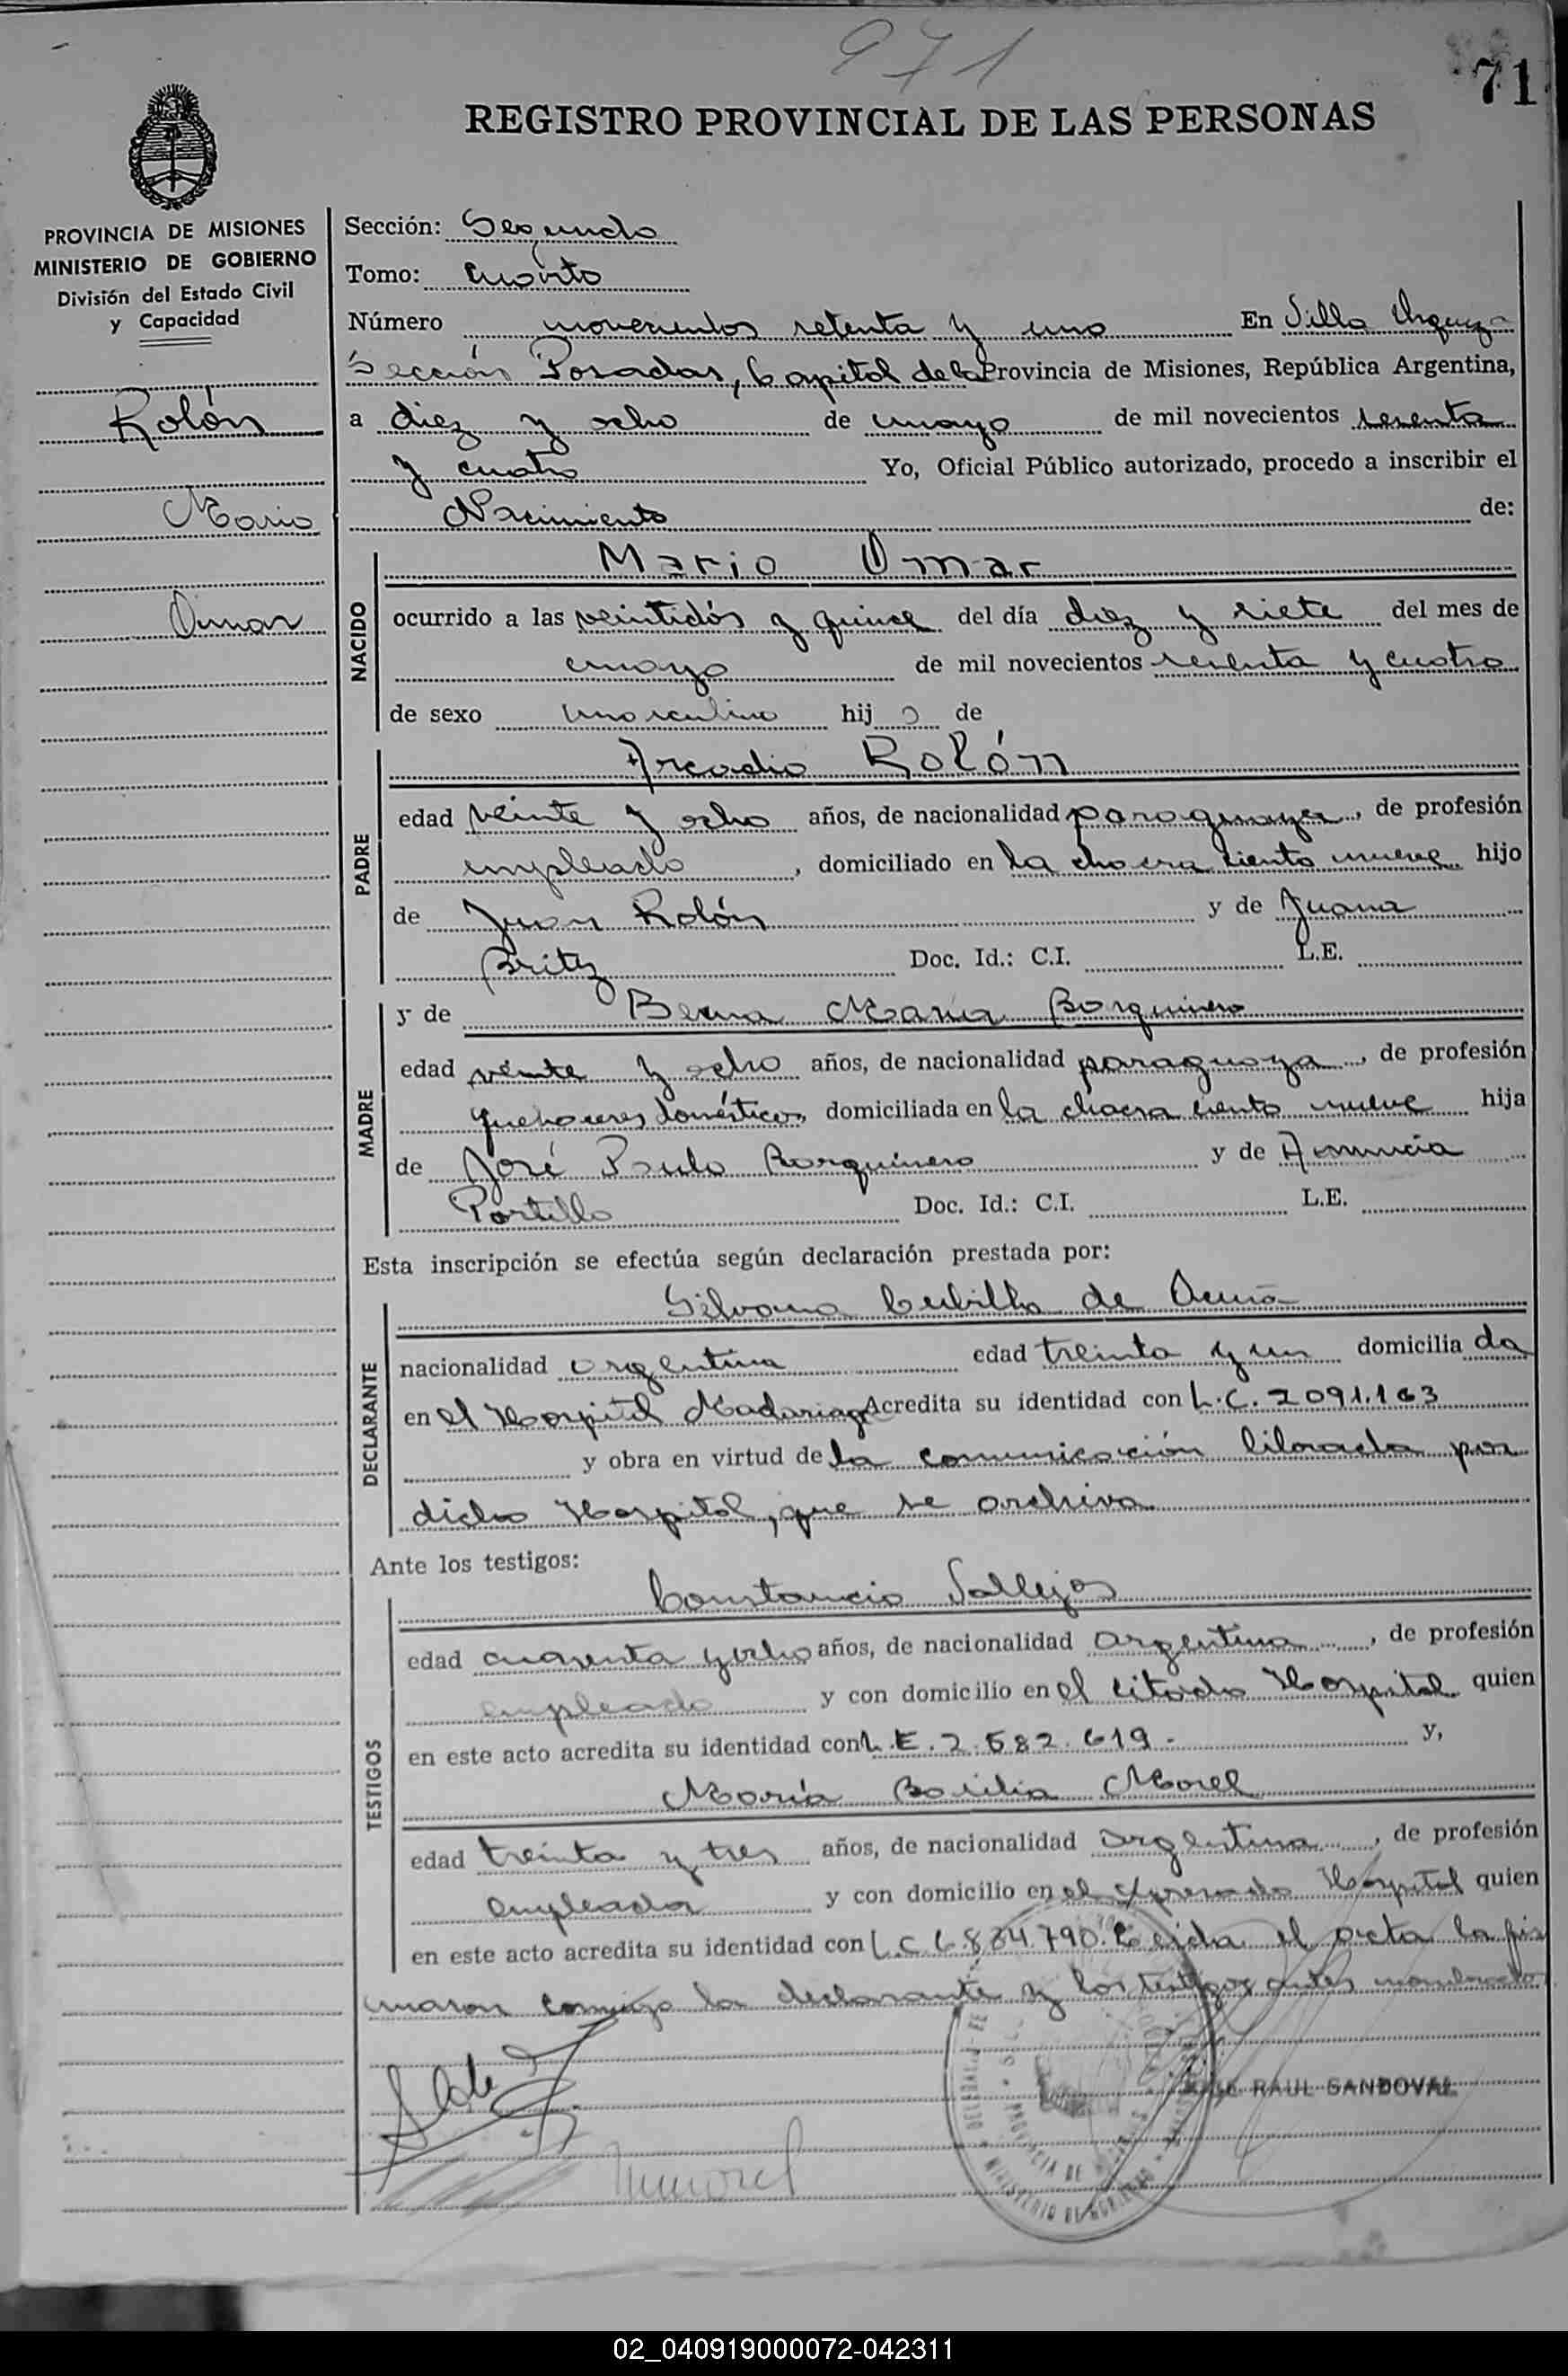 971
71
REGISTRO PROVINCIAL DE LAS PERSONAS
PROVINCIA DE MISIONES
MINISTERIO DE GOBIERNO
División del Estado Civil
y Capacidad
Rolón
Mario
Omar
Sección: Segunda
Tomo: Cuarto
Número novecientos setenta y uno En Villa Urquiza
Sección Posadas, Capital de la Provincia de Misiones, República Argentina,
a diez y ocho de mayo de mil novecientos sesenta
y cuatro Yo, Oficial Público autorizado, procedo a inscribir el
Nacimiento de:
NACIDO
Mario Omar
ocurrido a las veintidós y quince del día diez y siete del mes de
mayo de mil novecientos sesenta y cuatro
de sexo masculino hijo de
PADRE
Arcadio Rolón
edad veinte y ocho años, de nacionalidad paraguaya, de profesión
empleado, domiciliado en la chacra ciento nueve hijo
de Juan Rolón y de Juana
Britez Doc. Id.: C.I. L.E.
MADRE
y de María Borquinero
edad veinte y ocho años, de nacionalidad paraguaya, de profesión
quehaceres domésticos, domiciliada en la chacra ciento nueve hija
de José Paulo Borquinero y de Asunción
Portillo Doc. Id.: C.I. L.E.
Esta inscripción se efectúa según declaración prestada por:
DECLARANTE
Silvana Cubilla de Acuña
nacionalidad argentina edad treinta y un domiciliada
en el Hospital Madariaga Acredita su identidad con L.C. 2091.163
y obra en virtud de la comunicación librada por
dicho Hospital, que se archiva
Ante los testigos:
TESTIGOS
Constancio Vallejos
edad cuarenta y ocho años, de nacionalidad argentina, de profesión
empleado y con domicilio en el citado Hospital quien
en este acto acredita su identidad con L.E. 2.582.619.- y,
María Basilia Morel
edad treinta y tres años, de nacionalidad argentina, de profesión
empleada y con domicilio en el expresado Hospital quien
en este acto acredita su identidad con L.C 6.834.790. Leida el acta la fir
maron conmigo la declarante y los testigos antes nombrados
RAUL SANDOVAL
PROVINCIA DE
MINISTERIO DE GOBIERNO
02_040919000072-042311